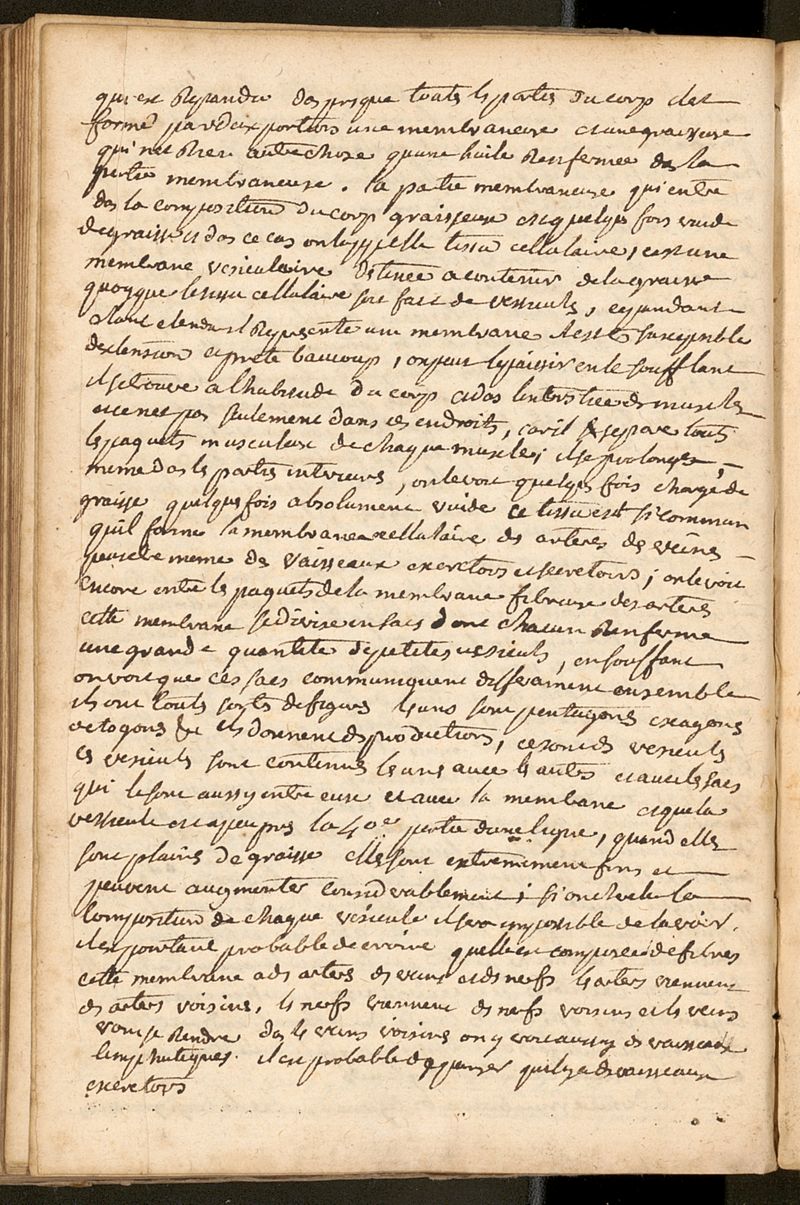 qui est repandu das presque touts les parties du corp elest
formé par deux portions une membraneuse et une graisseuse
qui nest rien autre chose quune huile renfermée das la
partie membraneuse. la partie membraneuse qui entre
das la composition du corp graisseux est quelque fois vuide
de graisse et das ce cas on lappelle tissu cellulaire, cest une
membrane vesiculaire destinée a contenir de la graisse
quoyque le tissu cellulaire soit fait de vessicules, cependant
etant etendu il represente une membrane il est susceptible
dextension et prete beaucoup, on peut lepaissir en le soufflant
il se trouve a lhabitude du corp et das linterstice ds muscles
et ce nest pas seulement dans ces endroits, car il separe touts
les paquets musculeux de chaque muscles, il se prolonge,
meme das les parties interieures, on le voit quelque fois chargé de
graisse quelques fois absolument vuide ce tissu est si commun
quil forme la membrane cellulaire ds arteres ds veines
peut etre meme ds vaisseaux excretoirs et secretoirs; on le voit
encore entre les paquets de la membrane fibreuse des arteres
cette membrane se divise en sacs dont chacun renferme
une grande quantité de petites vesiculs, en soufflant
on voit que ces sacs communiquent differament ensemble
ils ont touts sorts de figures les uns sont pentagones exagones
octogones &c ils donnent ds productions, ce sont ds vesiculs
ces vesiculs sont continues les uns avec ls autres et avec les sacs
qui le sont aussy entre eux et avec la membrane et que la
vessicule est a peu pres la 40e partie dune ligne, quand elles
sont plains de graisse elles sont extremement fins et
peuvent augmenter considerablement; si on cherche la
composition de chaque vesicule il sera impossible de la voir.
il est pourtant probable de croire quelle est composée de fibres
cette membrane a ds arters ds veins et ds nerfs ls arters viennent
ds arters voisins, ls nerfs viennent ds nerfs voisins et ls veins
vont se rendre das ls veins voisins on y voit aussy ds vaisseaux
limphatiques. il est probable de penser quil y a ds vaisseaux
excretoirs